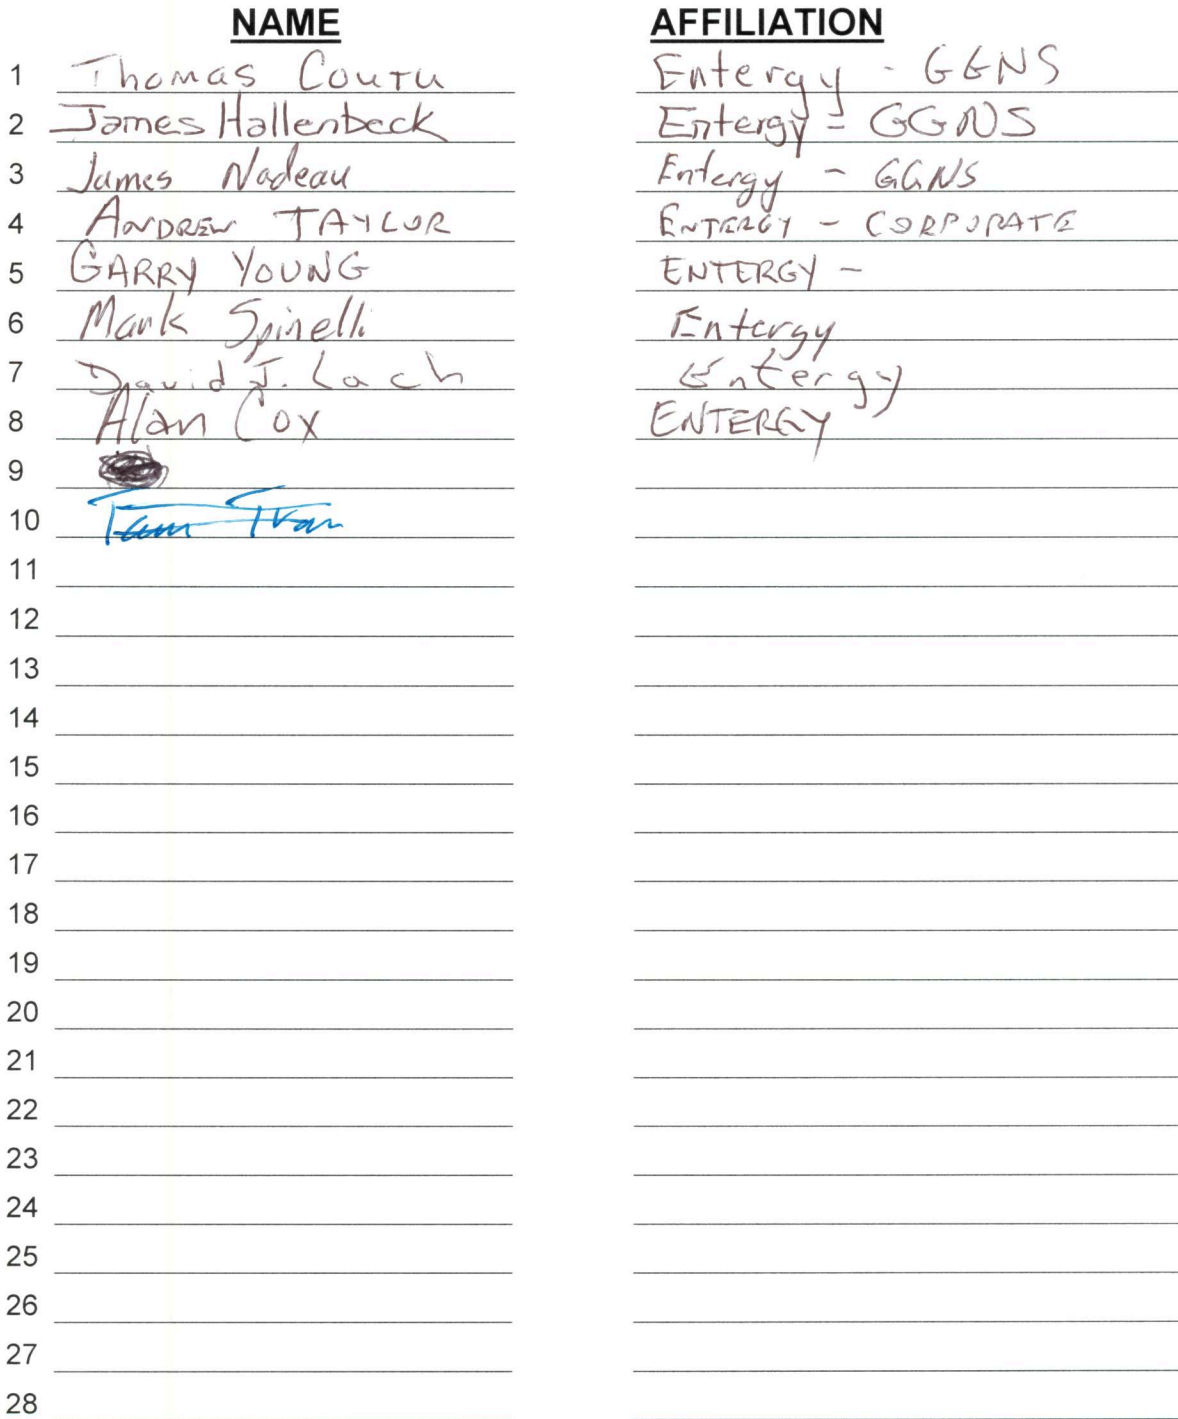 NAME AFFILIATION
1 Thomas Coutu Entergy - GGNS
2 James Hallenbeck Entergy - GGNS
3 James Nadeau Entergy - GGNS
4 ANDREW TAYLOR ENTERGY - CORPORATE
5 GARRY YOUNG ENTERGY -
6 Mark Spinelli Entergy
7 David J. Lach Entergy
8 Alan Cox ENTERGY
9
10 Tam Tran
11
12
13
14
15
16
17
18
19
20
21
22
23
24
25
26
27
28